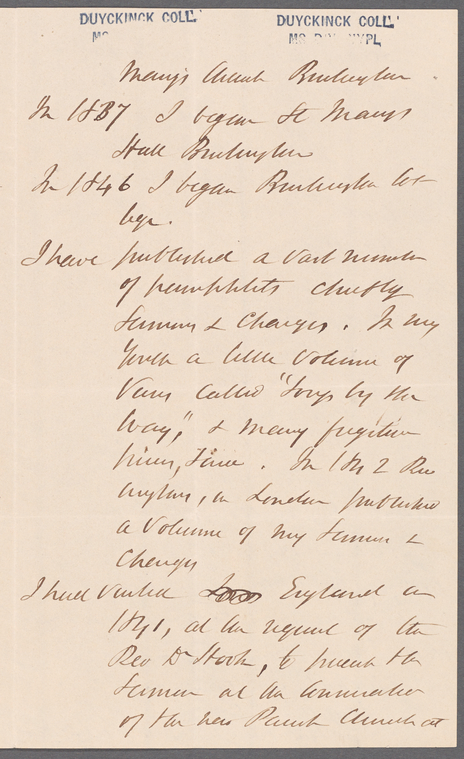 DUYCKINCK COLL.
DUYCKINCK COLL.
Mary's Church Burlington
In 1837 I began St Marys
Hall Burlington
In 1846 I began Burlington Col-
lege.
I have published a vast number
of pamphlets chiefly
Sermons & Charges. In my
youth a little volume of
Verses called "Songs by the
Way," & many fugitive
pieces, since. In 1842 Riv
ingtons, in London published
a volume of my Sermons &
Charges
I had visited England in
1841, at the request of the
Rev Dr Hook, to preach the
Sermon at the Consecration
of the new Parish Church at